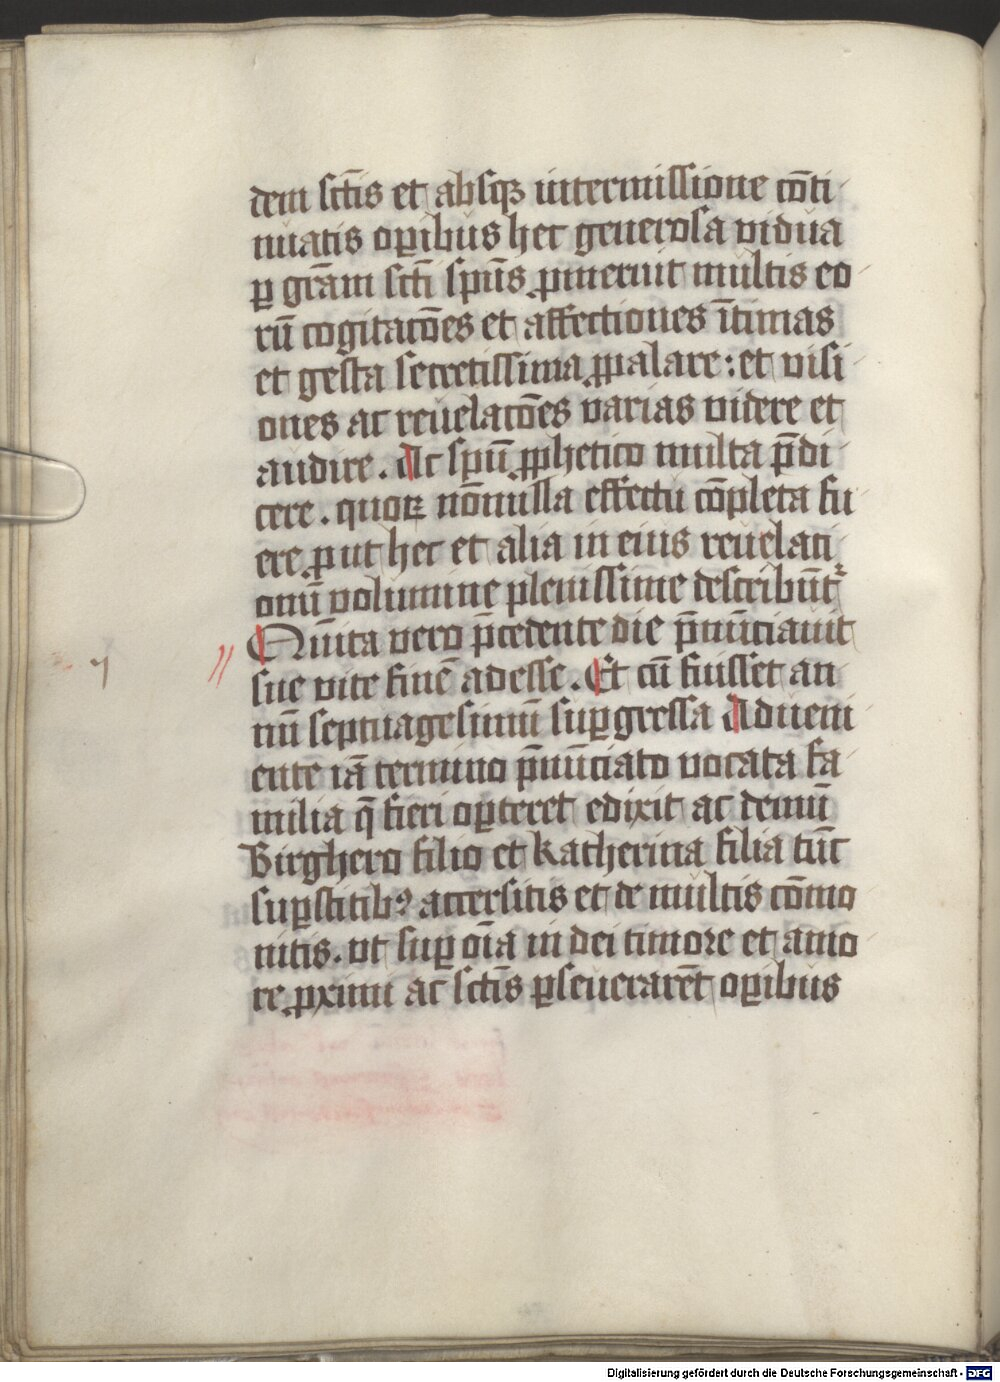 dem sctīs et absqꝫ intermissione cōti
nuatis oꝑibus hec generosa vidua
ꝑ grām sctī spūs ꝓmeruit multis eo
rū cogitacōes et affectiones ītimas
et gesta secretissima ꝓpalare: et visi
ones ac reuelacōes varias videre et
audire. Ac spū ꝓphetico multa p̄di
cere. quoꝝ nōnulla effectu cōpleta fu
ere ꝓut hec et alia in eius reuelati
onū volumine plenissime describūt᷑
Quīta vero p̄cedente die p̄nūciauit
sue vite finē adesse. Et cū fuisset an
nū septuagesimū suꝑgressa Adueni
ente iā termino p̄nūciato vocata fa
milia q̄ fieri oꝑteret edixit ac demū
Birghero filio et Katherina filia tūc
suꝑstitibꝰ accersitis et de multis cōmo
nitis. vt suꝑ oīa in dei timore et amo
re ꝓximi ac sctīs ꝑseuerarēt oꝑibus
Digitalisierung gefördert durch die Deutsche Forschungsgemeinschaft - DFG